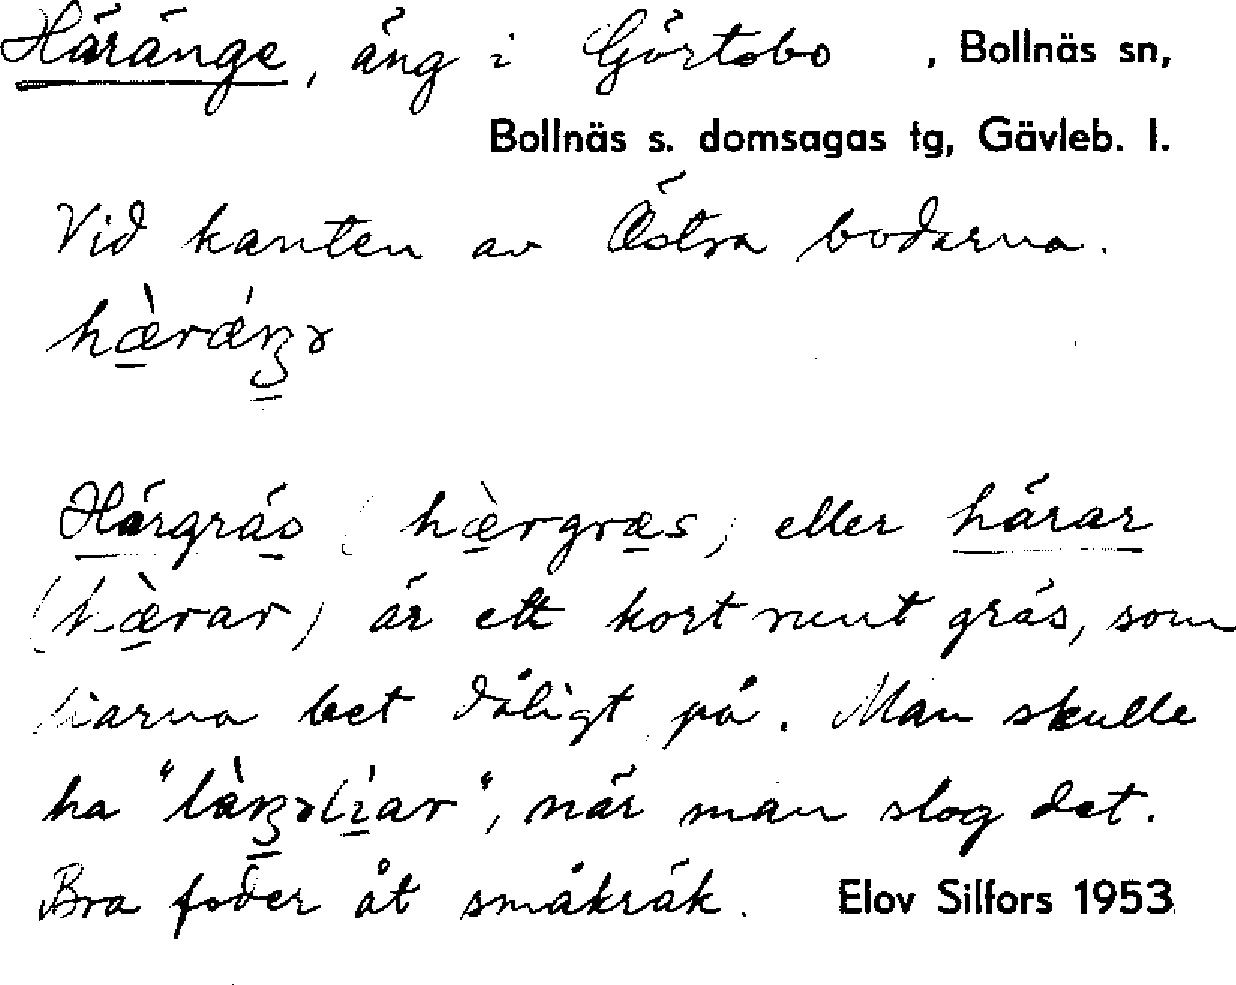 Häränge, äng i Görtsbo , Bollnäs sn,
Bollnäs s. domsagas tg, Gävleb. l.
Vid kanten av Östra bodarna.
hæ̀rǽŋə
Härgräs (hæ̀rgræs) eller härar
(hæ̀rar) är ett kort runt gräs, som
liarna bet dåligt på. Man skulle
ha "làŋəliar", när man slog det.
Bra foder åt småkräk. Elov Silfors 1953